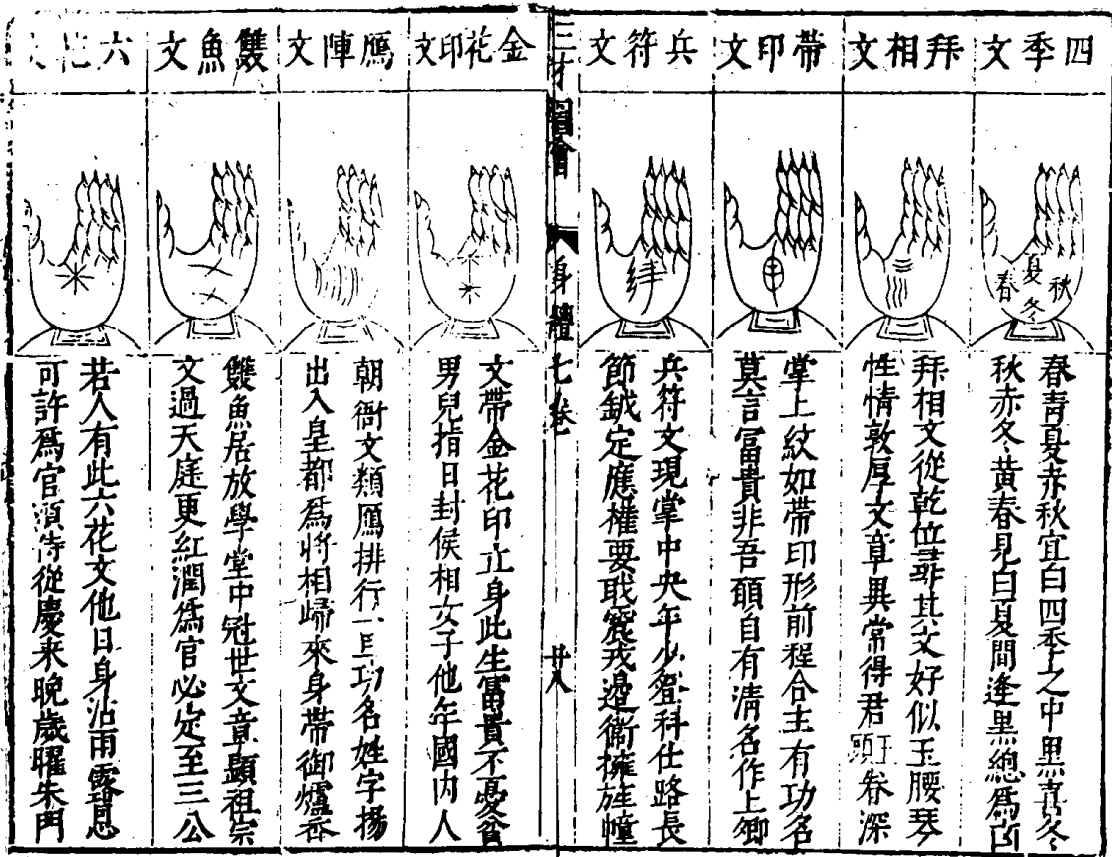 四季文
春夏秋冬
春青夏赤秋宜白四季之中黑喜冬
秋赤冬黃春見白夏間逢黑總為凶
拜相文
拜相文從乾位尋其文好似玉腰琴
性情敦厚文章異常得君王眷深
帶印文
掌上紋如帶印形前程合主有功名
莫言富貴非吾願自有清名作上卿
兵符文
兵符文現掌中央年少登科仕路長
節鉞定應權要職震戎邊衛擁旌幢
三才圖會
身體七卷
廿八
金花印文
文帶金花印立身此生富貴不憂貧
男兒指日封侯相女子他年國內人
鴈陣文
朝衙文類鴈排行一旦功名姓字揚
出入皇都為將相歸來身帶御爐香
雙魚文
雙魚居放學堂中冠世文章顯祖宗
文過天庭更紅潤為官必定至三公
六花文
若人有此六花文他日身沾雨露恩
可許為官須侍從慶來晚歲曜朱門